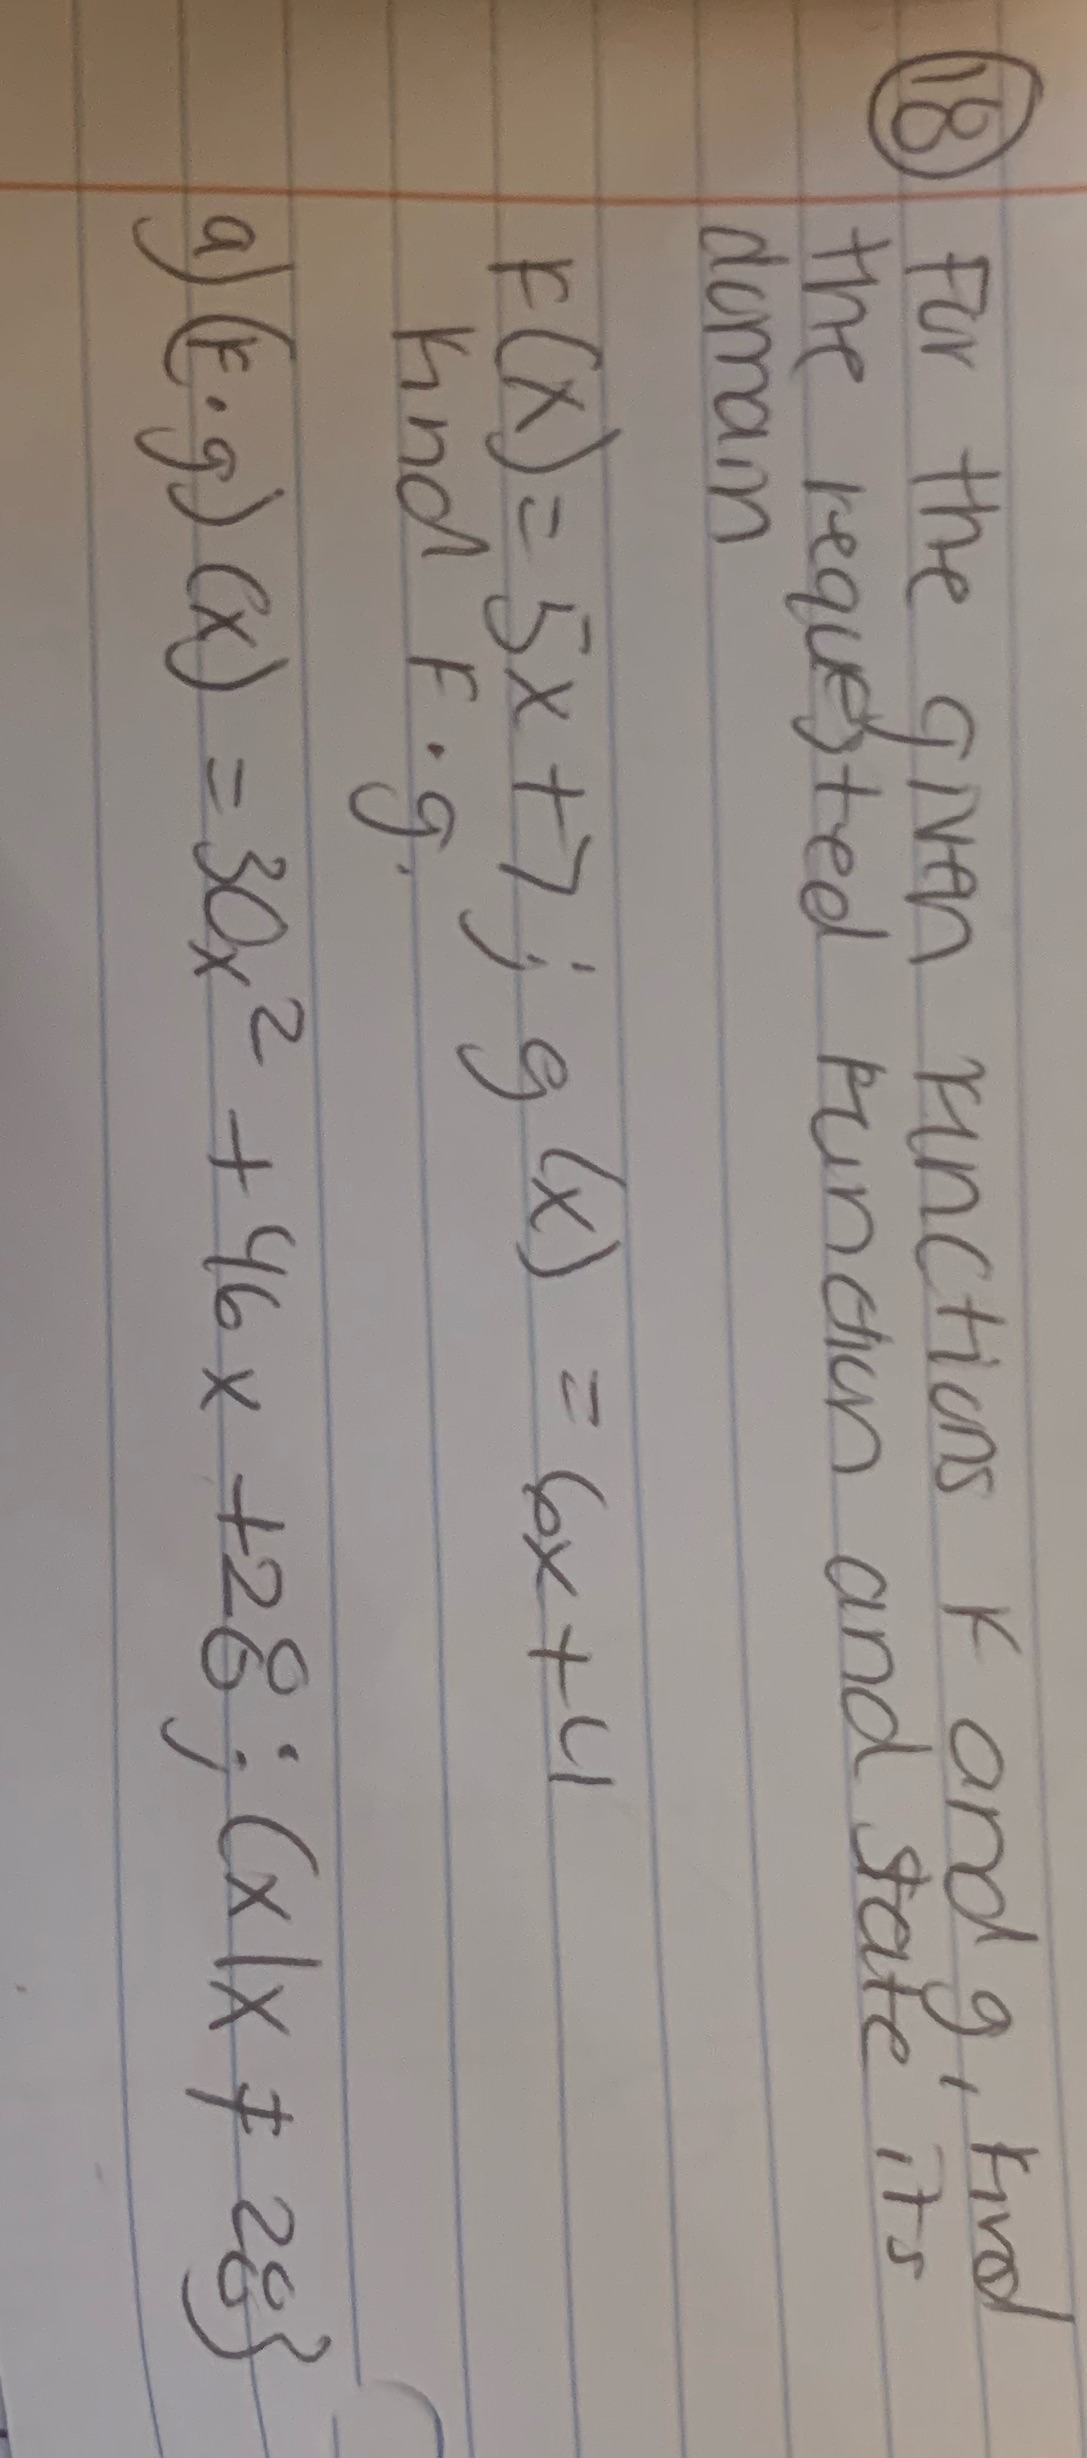 18 For the given functions f and g, find
the requested function and state its
domain
f(x) = 5x + 7 ; g(x) = 6x + 4
find f · g.
a) (f · g) (x) = 30x² + 46x + 28 ; (x|x ≠ 28}